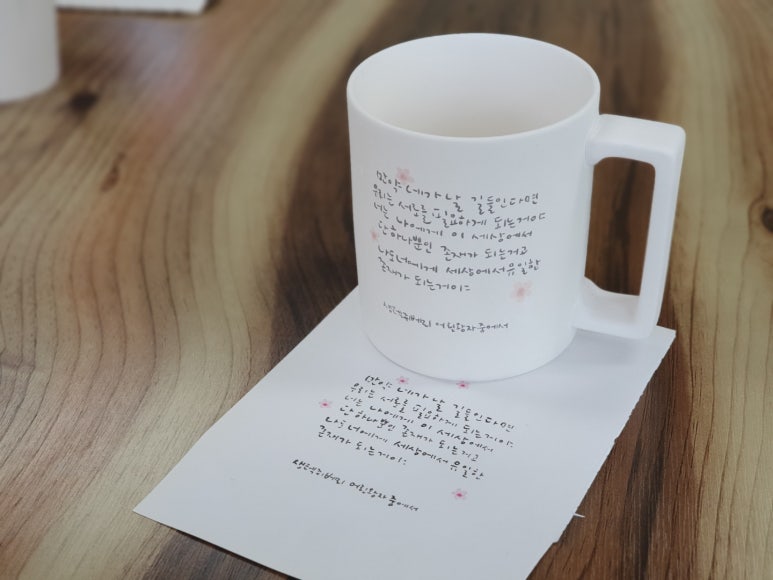 만약 네가 날 길들인다면
우리는 서로를 필요하게 되는거야
너는 나에게 이 세상에서
단하나뿐인 존재가 되는거고
나도 너에게 세상에서 유일한
존재가 되는거야
생텍쥐베리 어린왕자중에서
만약 네가 날 길들인다면
우리는 서로를 필요하게 되는거야
너는 나에게 이 세상에서
단하나뿐인 존재가 되는거고
나도 너에게 세상에서 유일한
존재가 되는거야
생텍쥐베리 어린왕자중에서